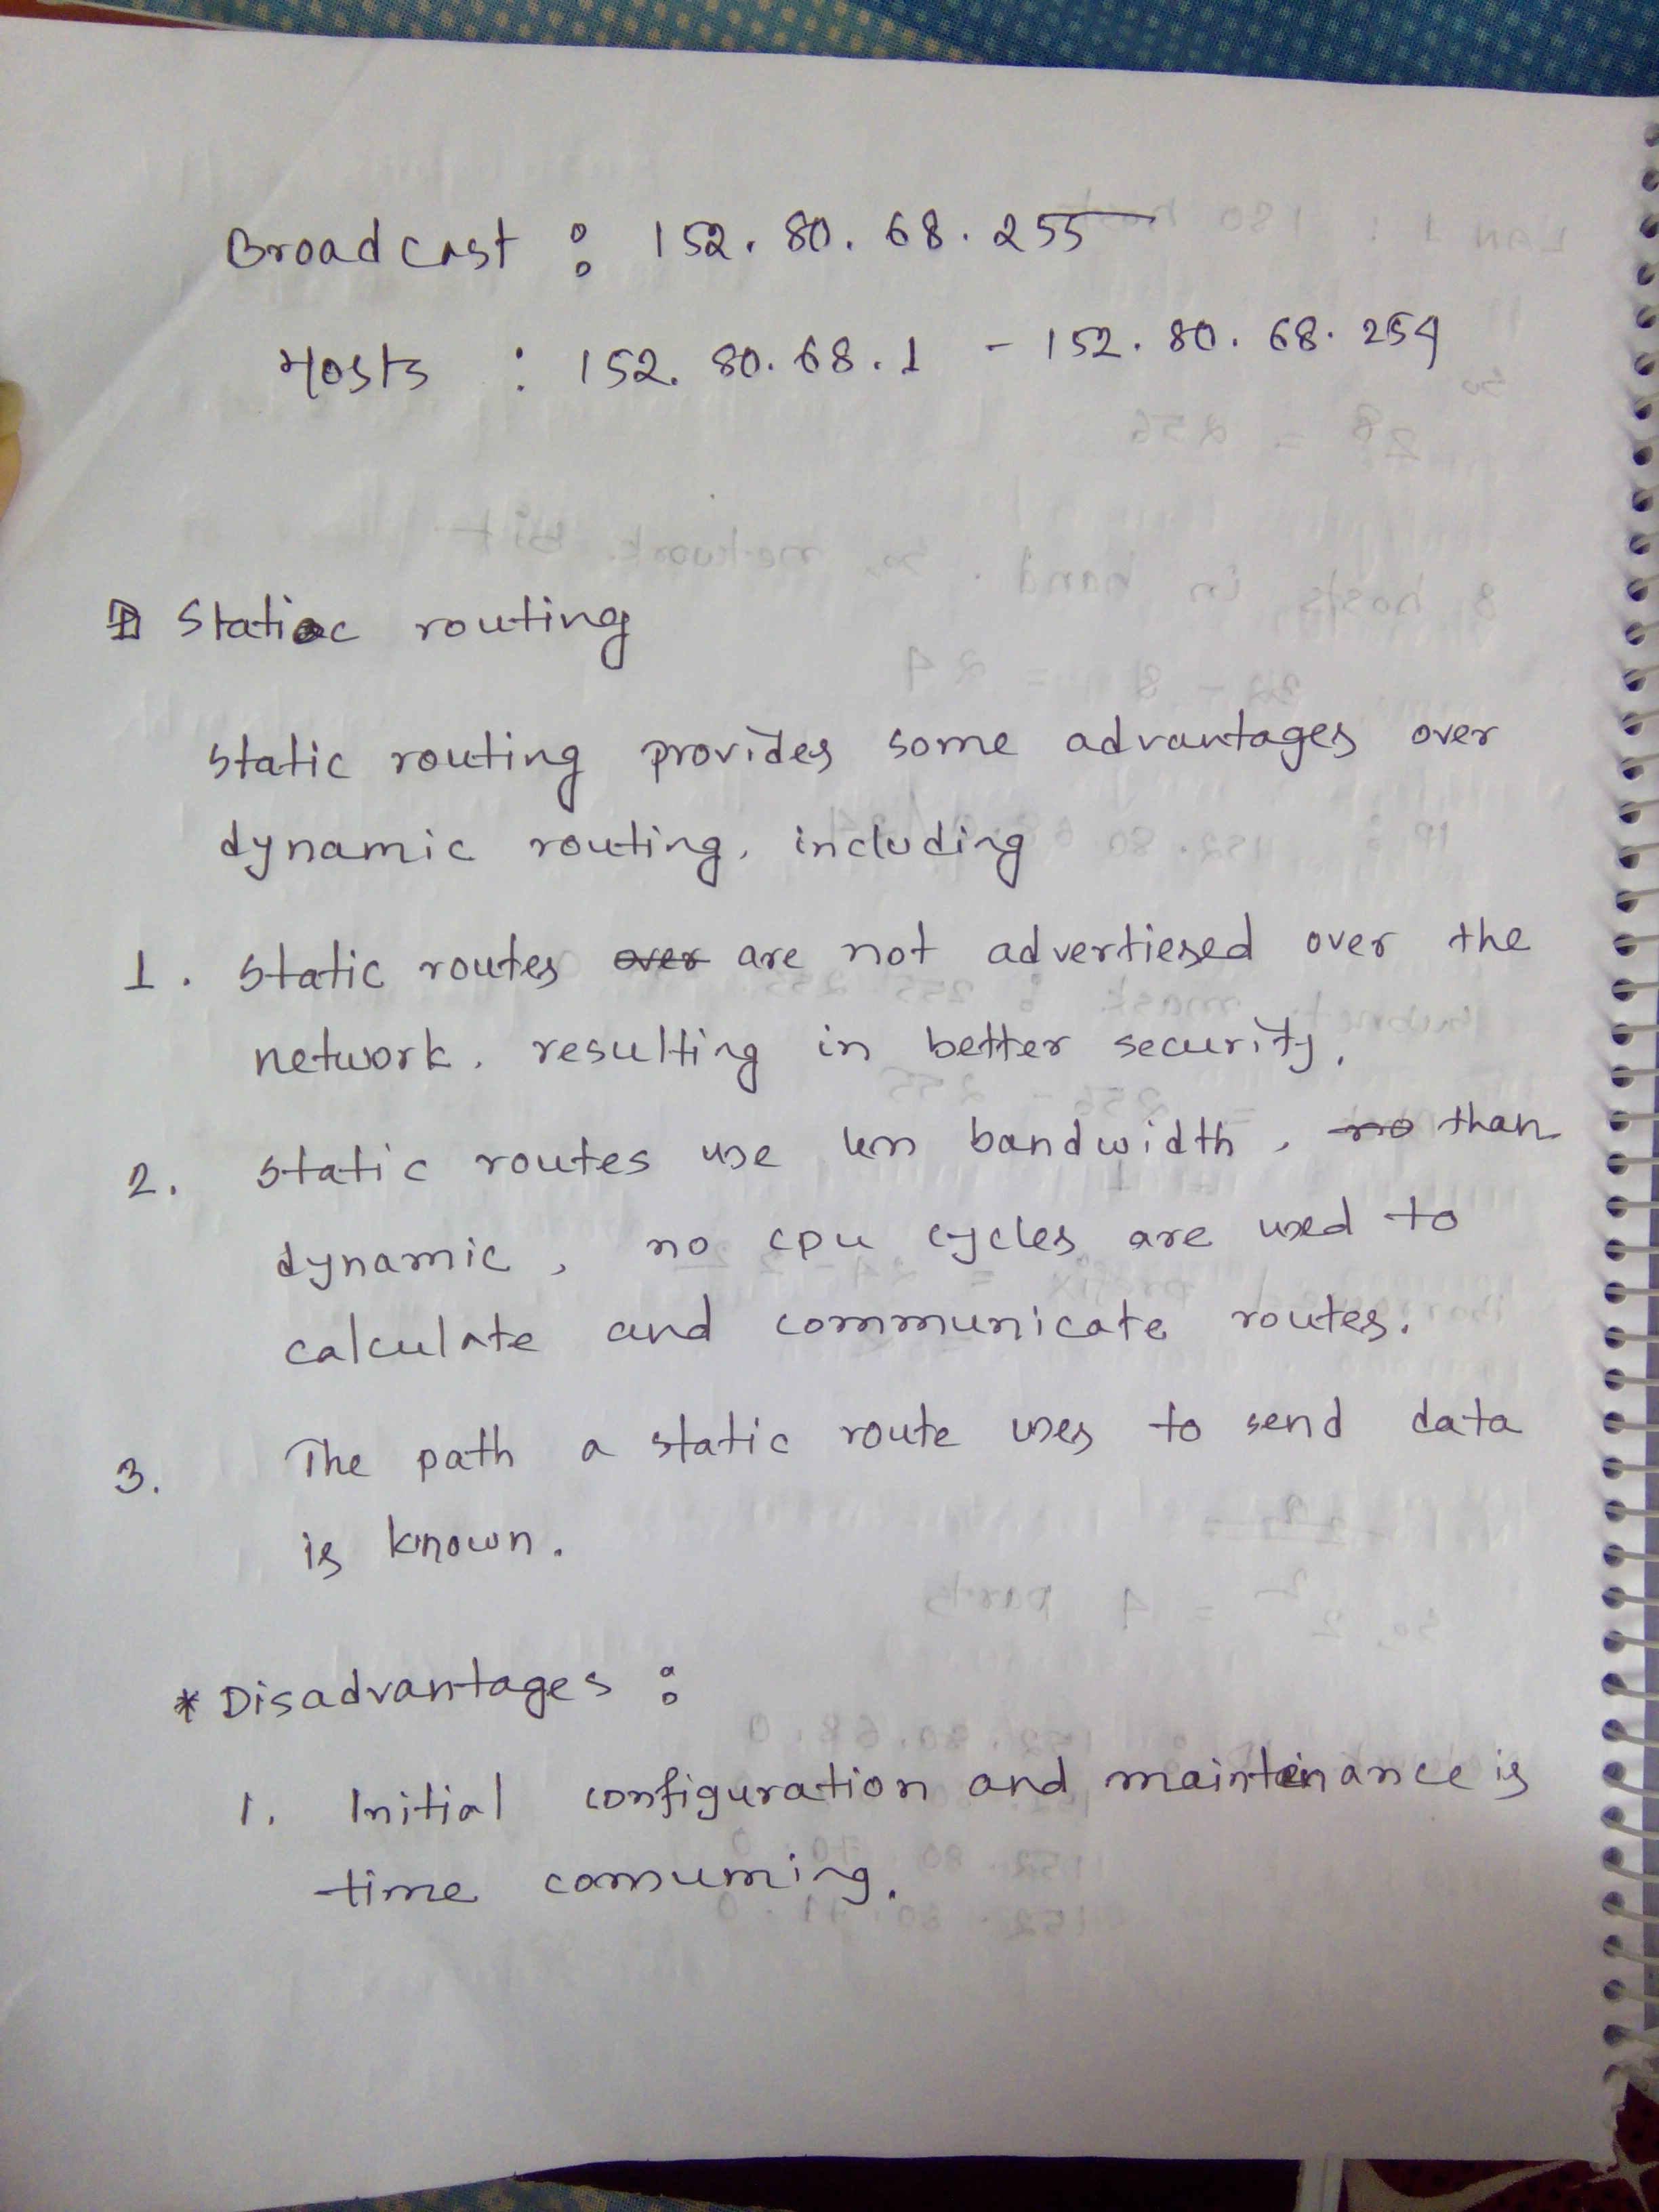 Broadcast : 152. 80. 68. 255
Hosts : 152. 80. 68. 1 - 152. 80. 68. 254
Static routing
static routing provides some advantages over
dynamic routing, including
1. Static routes over are not advertiesed over the
network, resulting in better security.
2. Static routes use bandwidth, no than
dynamic, no cpu cycles are used to
calculate and communicate routes.
3. The path a static route uses to send data
is known.
* Disadvantages :
1. Initial configuration and maintainance is
time consuming.